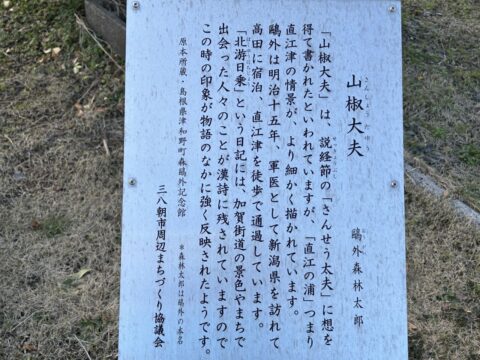 山椒大夫
さんしょうだゆう
鷗外森林太郎
「山椒大夫」は、説経節の『さんせう太夫』に想を
得て書かれたといわれていますが、「直江の浦」つまり
直江津の情景が、より細かく描かれています。
鷗外は明治十五年、軍医として新潟県を訪れて
高田に宿泊、直江津を徒歩で通過しています。
「北游日乗」という日記には、加賀街道の景色やまちで
出会った人々のことが漢詩に残されていますので
この時の印象が物語のなかに強く反映されたようです。
原本所蔵・島根県津和野町森鷗外記念館
＊森林太郎は鷗外の本名
三八朝市周辺まちづくり協議会